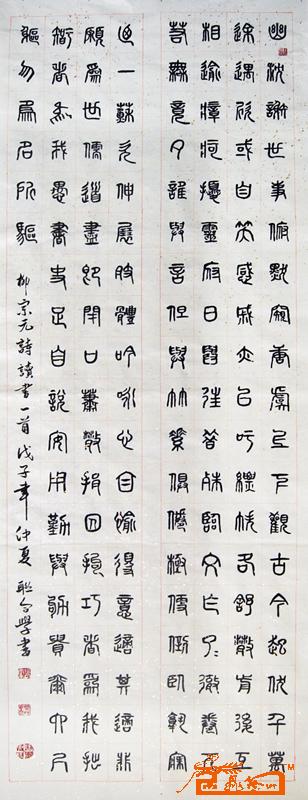 幽沈謝世事俯默窺唐虞上下觀古今起伏千萬
途遇欣或自笑感戚亦以吁縹帙各舒散前後互
相逾瘴痾擾靈府日與往昔殊臨文乍了了徹卷兀
若無竟夕誰與言但與竹素俱倦極便倒臥熟寐
乃一蘇欠伸展肢體吟詠心自愉得意適其適非
願為世儒道盡即閉口蕭散捐囚拘巧者為我拙
智者為我愚書史足自說安用勤與劬貴爾六尺
軀勿為名所驅
柳宗元詩讀書一首戊子年仲夏聯合學書